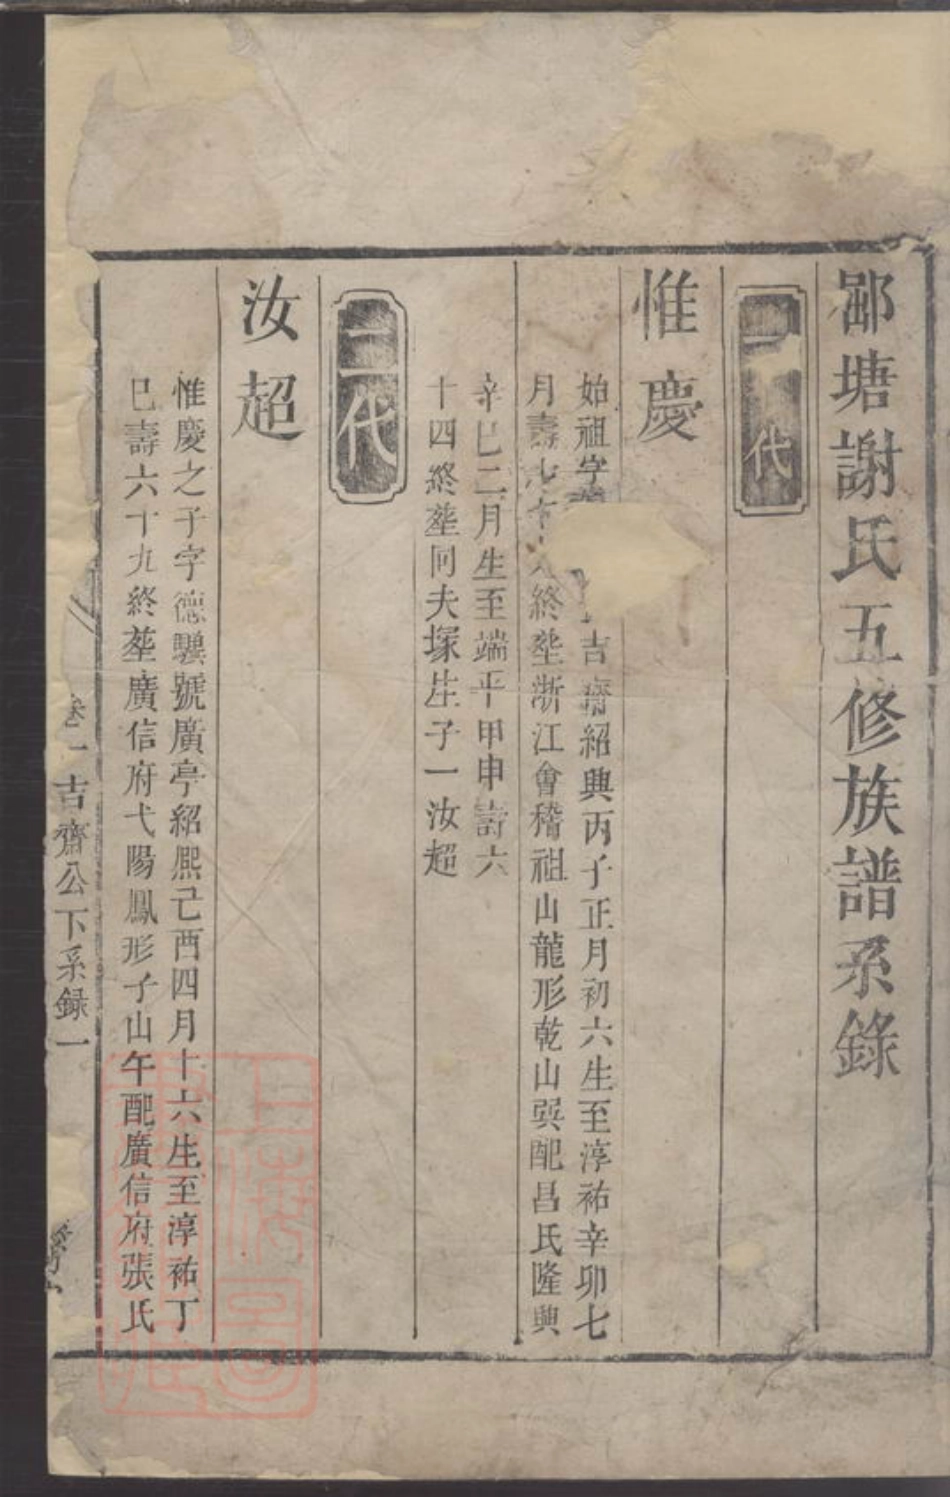 塘謝氏五修族譜系錄
代
惟慶
始祖字
吉齋紹興丙子正月初六生至淳祐辛卯七
月壽七十
終塟浙江會稽祖山龍形乾山巽配昌氏隆興
辛巳二月生至端平甲申壽六
十四終塟同夫塚生子一汝超
二代
汝超
惟慶之子字德驥號廣亭紹熙己酉四月十六生至淳祐丁
巳壽六十九終塟廣信府弋陽鳳形子山午配廣信府張氏
卷一 吉齋公下系錄一
上海圖書館藏